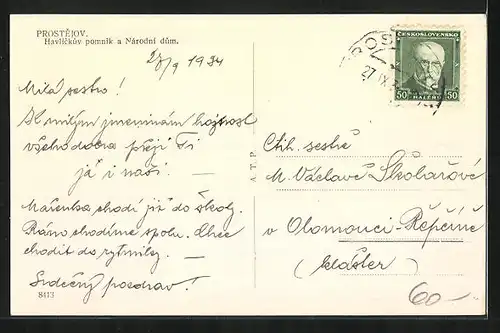 PROSTĚJOV.
Havlíčkův pomník a Národní dům.
27/9 1934
Milá sestro!
K milým jmeninám hojnost
všeho dobra přeji Ti
já i naši.
Mařenka chodí již do školy.
Ráno chodíme spolu. Chce
chodit do rytmiky.
Srdečný pozdrav!
8413
A.T.P.
ČESKOSLOVENSKO
50 50
HALÉŘŮ
PROS
27 IX
Ctih. sestře
M. Václavě Školařové
v Olomouci-Řepčíně
(klášter)
60-